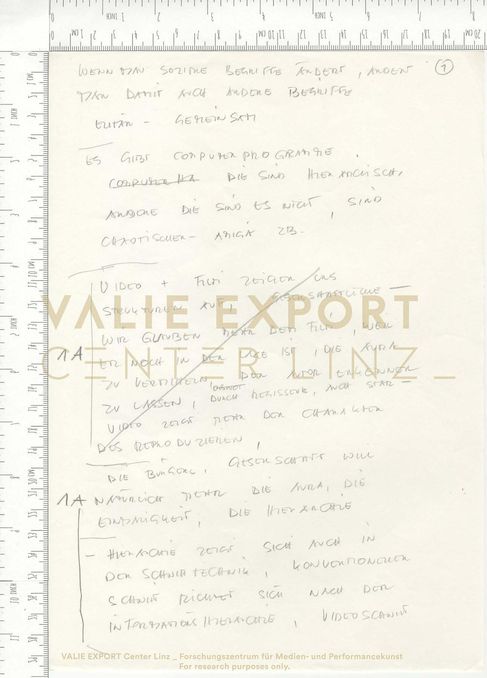 WENN MAN SOZIALE BEGRIFFE ÄNDERT, ÄNDERT ①
MAN DAMIT AUCH ANDERE BEGRIFFE
ELITÄR – GEMEINSAM
ES GIBT COMPUTERPROGRAMME,
COMPUTER DIE SIND HIERARCHISCH,
ANDERE DIE SIND ES NICHT, SIND
CHAOTISCHER – AMIGA ZB.
VIDEO + FILM ZEIGEN UNS
STRUKTUREN AUF, GESELLSCHAFTLICHE –
WIR GLAUBEN MEHR DEM FILM, WEIL
1A ER NOCH IN DER LAGE IST, DIE AURA
ZU VERMITTELN, DEN AUTOR ERKENNEN
ZU LASSEN, DURCH REGISSEUR, AUCH STAR –
VIDEO ZEIGT MEHR DEN CHARAKTER
DES REPRODUZIEREN,
DIE BÜRGERL. GESELLSCHAFT WILL
1A NATÜRLICH MEHR DIE AURA, DIE
EINMALIGKEIT, DIE HIERARCHIE
– HIERARCHIE ZEIGT SICH AUCH IN
DER SCHNITTECHNIK, KONVENTIONELLER
SCHNITT RICHTET SICH NACH DER
INFORMATIONSHIERARCHIE, VIDEOSCHNITT
VALIE EXPORT
CENTER LINZ_
VALIE EXPORT Center Linz _ Forschungszentrum für Medien- und Performancekunst
For research purposes only.